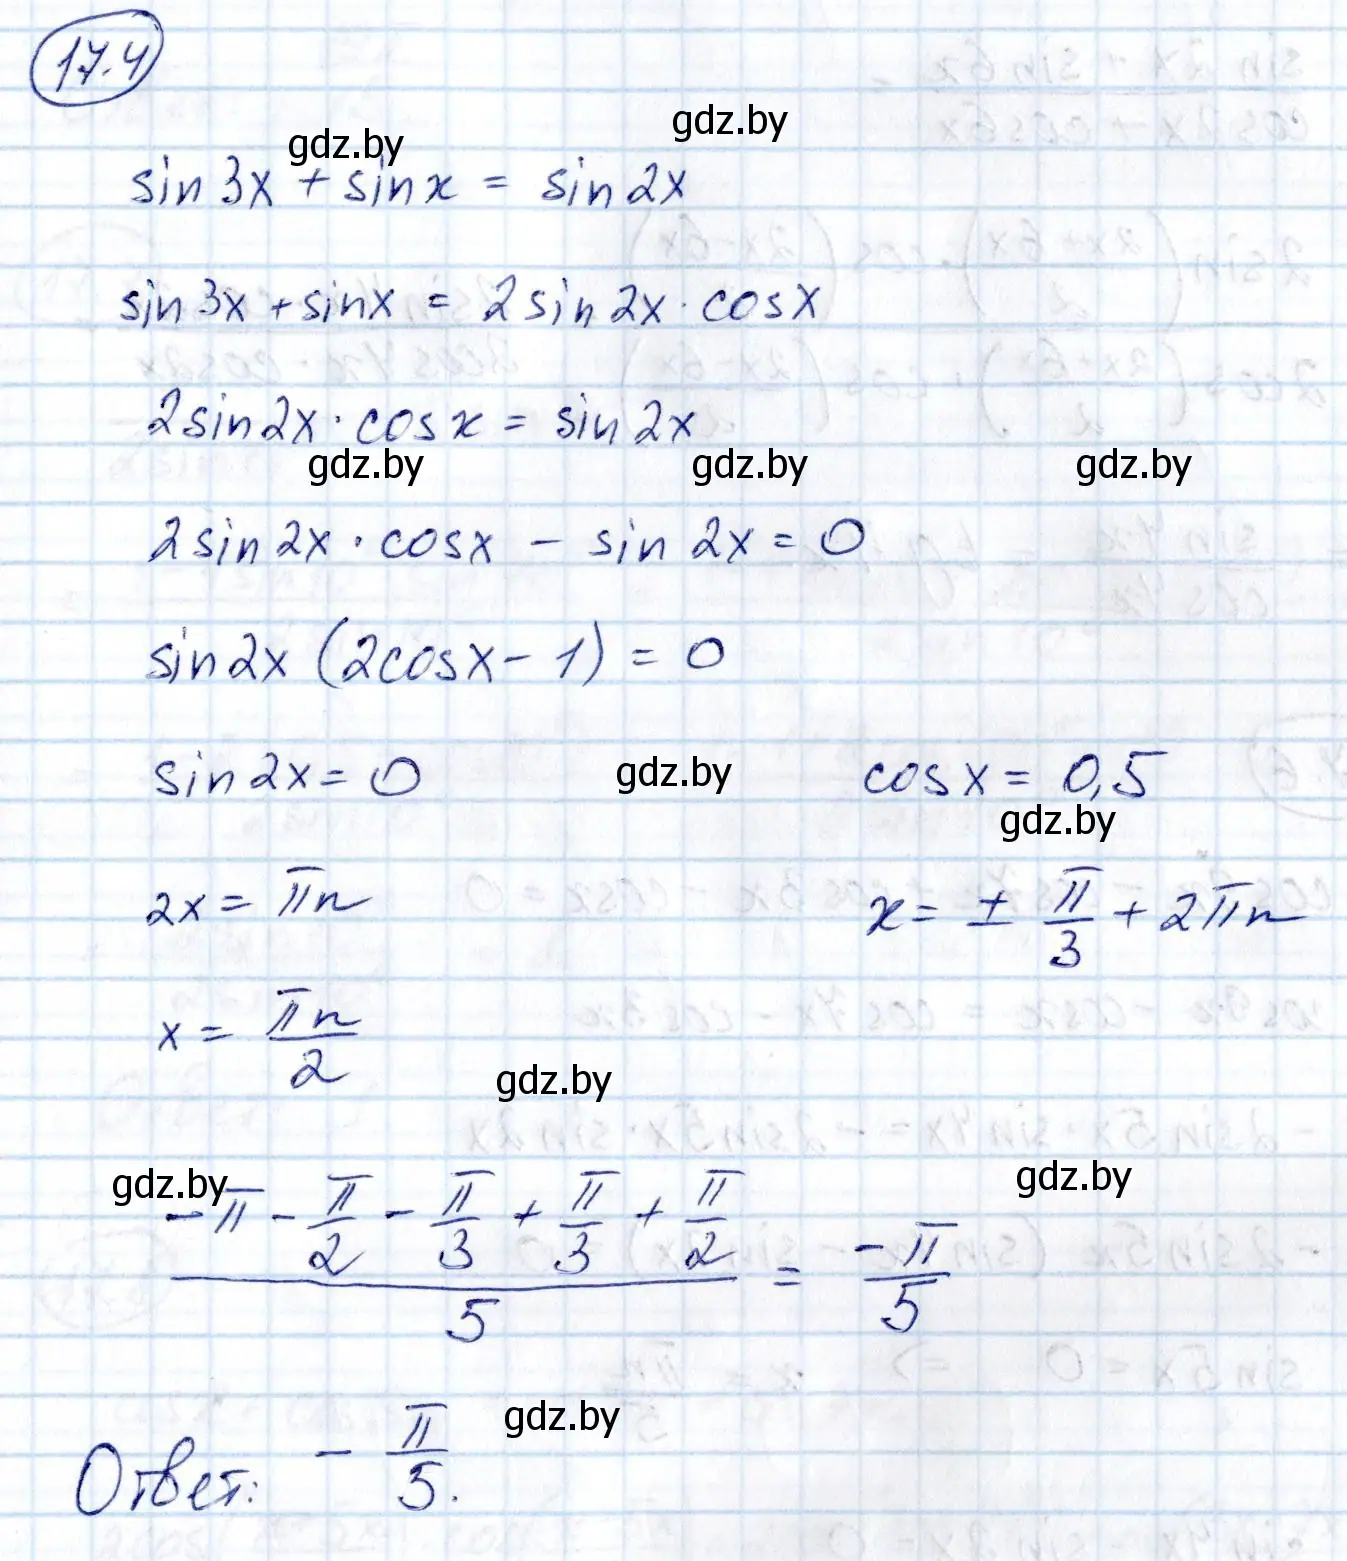 17.4
gdz.by
gdz.by
sin 3x + sin x = sin 2x
sin 3x + sin x = 2 sin 2x · cos x
2 sin 2x · cos x = sin 2x
gdz.by gdz.by gdz.by
2 sin 2x · cos x − sin 2x = 0
sin 2x (2cos x − 1) = 0
sin 2x = 0 gdz.by cos x = 0,5
gdz.by
2x = πn x = ± π/3 + 2πn
x = πn/2
gdz.by
gdz.by gdz.by
(−π − π/2 − π/3 + π/3 + π/2)/5 = −π/5
gdz.by
Ответ: − π/5.